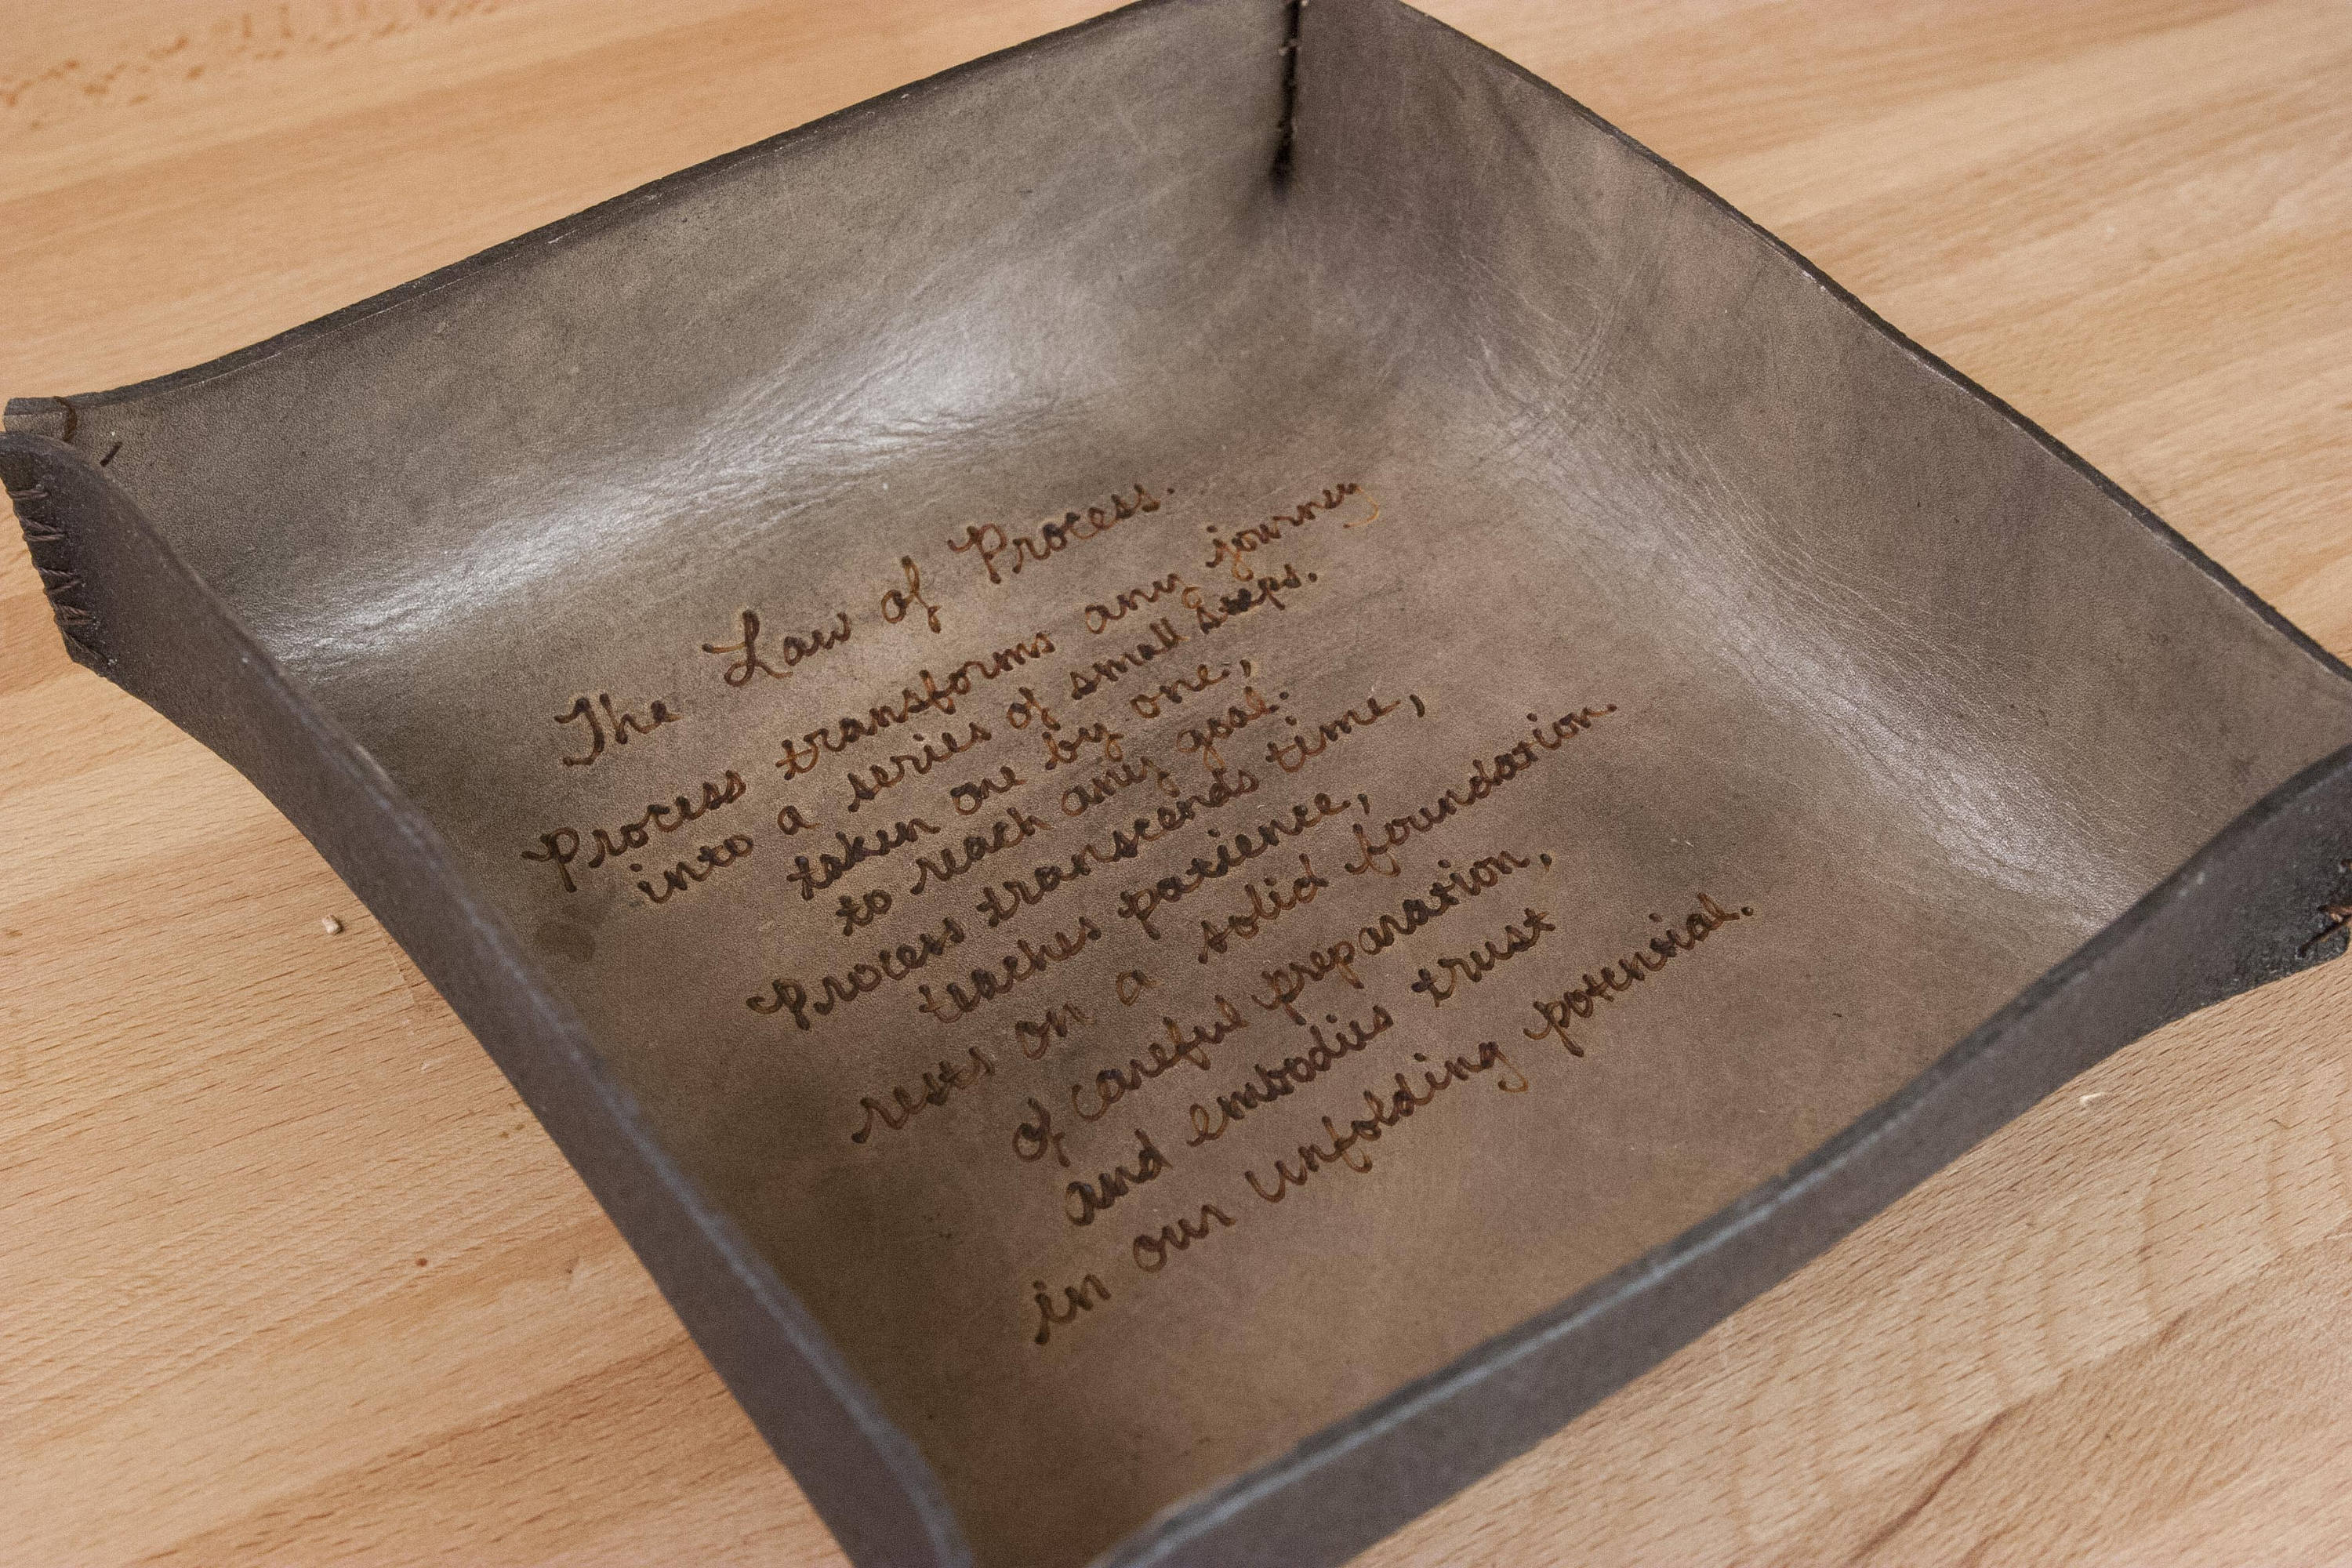 The Law of Process.
Process transforms any journey
into a series of small steps.
taken one by one,
to reach any goal.
Process transcends time,
teaches patience,
rests on a solid foundation.
of careful preparation,
and embodies trust
in our unfolding potential.